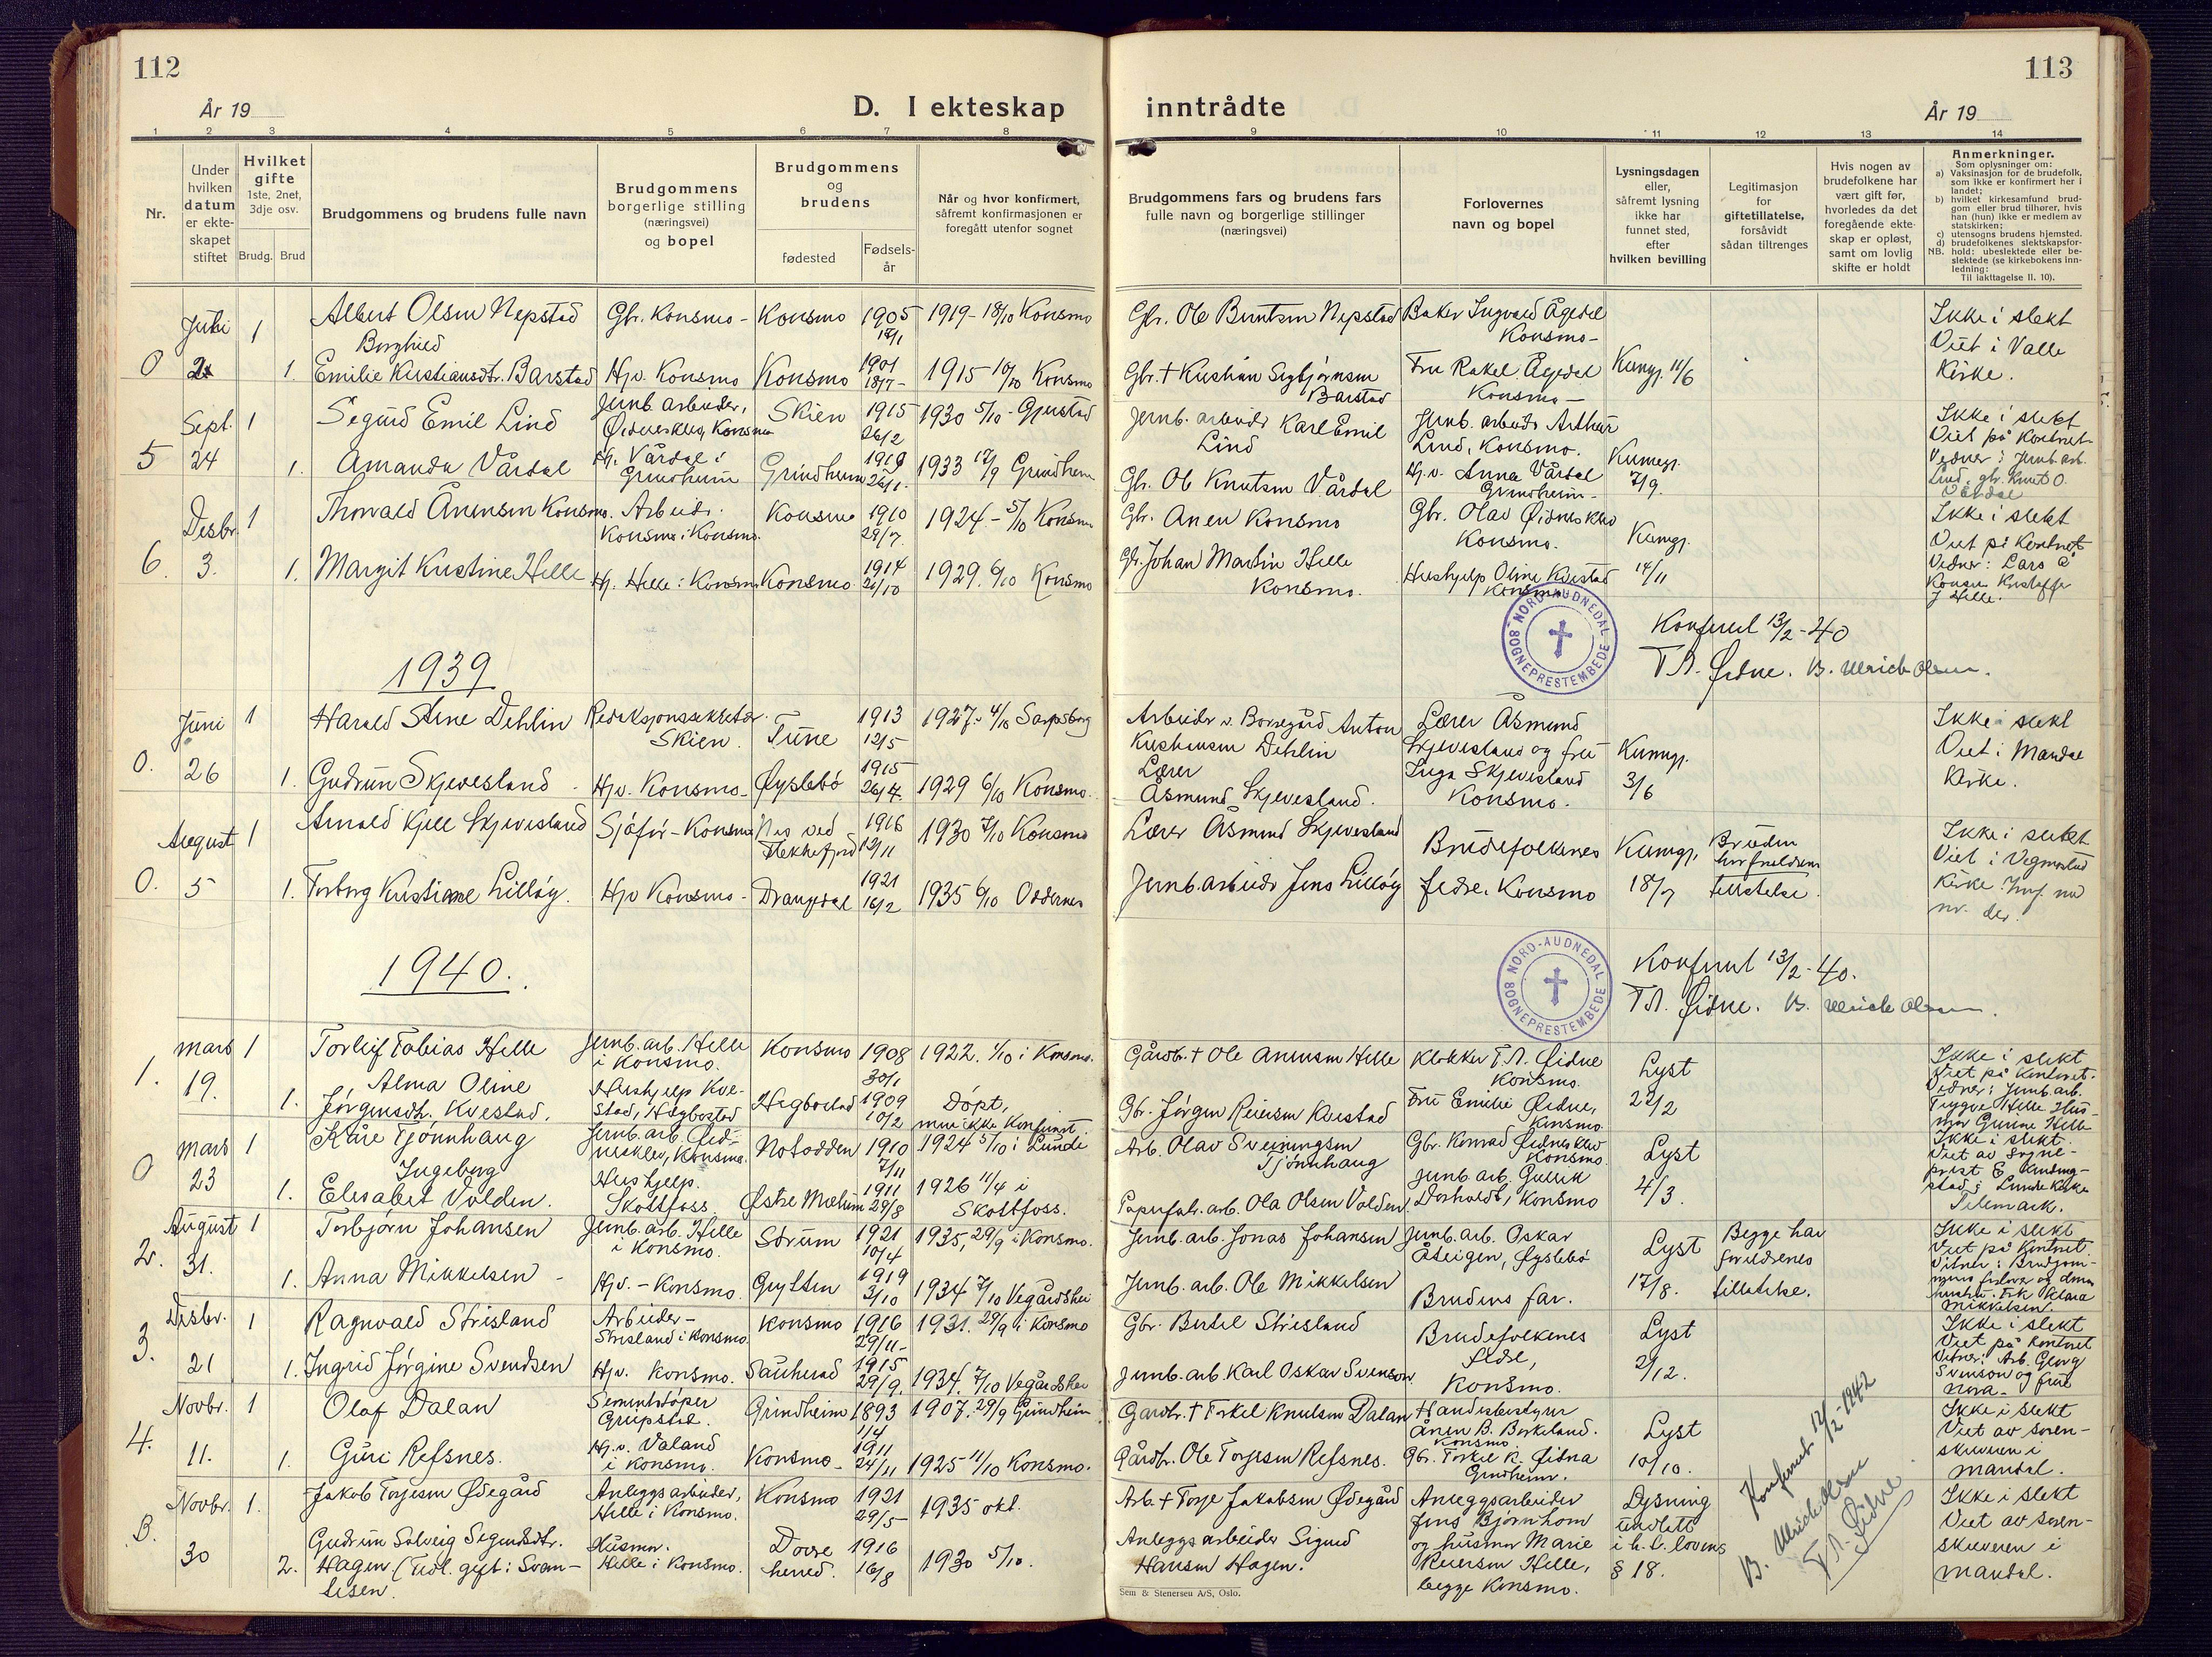 112
113
År 19
D. I ekteskap
inntrådte
År 19
1 2 3 4 5 6 7 8
9 10 11 12 13 14
Nr.
Under
hvilken
datum
er ekte-
skapet
stiftet
Hvilket
gifte
1ste, 2net,
3dje osv.
Brudg.
Brud
Brudgommens og brudens fulle navn
Brudgommens
borgerlige stilling
(næringsvei)
og bopel
Brudgommens
og
brudens
fødested
Fødsels-
år
Når og hvor konfirmert,
såfremt konfirmasjonen er
foregått utenfor sognet
Brudgommens fars og brudens fars
fulle navn og borgerlige stillinger
(næringsvei)
Forlovernes
navn og bopel
Lysningsdagen
eller,
såfremt lysning
ikke har
funnet sted,
efter
hvilken bevilling
Legitimasjon
for
giftetillatelse,
forsåvidt
sådan tiltrenges
Hvis nogen av
brudefolkene har
vært gift før,
hvorledes da det
foregående ekte-
skap er opløst,
samt om lovlig
skifte er holdt
Anmerkninger.
Som oplysninger om:
a) Vaksinasjon for de brudefolk,
som ikke er konfirmert her i
landet;
b) hvilket kirkesamfund brud-
gom eller brud tilhører, hvis
han (hun) ikke er medlem av
statskirken;
c) utensogns brudens hjemsted.
d) brudefolkenes slektskapsfor-
NB. hold: ubeslektede eller be-
slektede (se kirkebokens inn-
ledning:
Til iakttagelse II. 10).
0
21
1
Albert Olsen Nepstad
Gbr. Konsmo -
Konsmo
1905
1919 - 18/10 Konsmo
Gbr. Ole Berntsen Nepstad
Baker Ingvald Ågedal
Konsmo -
Ikke i slekt
Viet i Valle
Kirke.
1.
Borghild
Emilie Kristiansdtr. Barstad
Hjv. Konsmo
Konsmo
1901
18/7 -
1915 10/10 Konsmo
Gbr. † Kristian Sigbjørnsen
Barstad
Fru Rakel Ågedal
Konsmo -
Kunngj. 11/6
5
Sept.
24
1
Sigurd Emil Lind
Jernb. arbeider,
Øidneskleiv, Konsmo
Skien
1915
26/2
1930 5/10 - Gjerstad
Jernb. arbeider Karl Emil
Lind
Jernb. arbeider Arthur
Lind, Konsmo.
Kunngj.
7/9.
Ikke i slekt
Viet på Kontoret
Vidner: Jernb. arb.
Lind, gbr. Knut O.
Vårdal
1.
Amanda Vårdal
Hj. Vårdal i
Grindheim
Grindheim
1919
26/1.
1933 17/9 Grindheim
Gbr. Ole Knutsen Vårdal
Hj.v. Anna Vårdal
Grindheim -
6.
Desbr.
3.
1
Thorvald Ånensen Konsmo.
Arbeider.
Konsmo i Konsmo.
Konsmo
1910
29/7.
1924 - 5/10 Konsmo
Gbr. Anen Konsmo
Gbr. Olav Øidneskleiv
Konsmo.
Kunngj.
14/11
Ikke i slekt
Viet på Kontoret
Vidner: Lars Å
J Helle.
1.
Margit Kristine Helle
Hj. Helle i Konsmo
Konsmo
1914
26/10
1929. 6/10 Konsmo
Gbr. Johan Martin Helle
Konsmo.
Hushjelp Oline Kvestad
Konsmo
NORD-AUDNEDAL SOGNEPRESTEMBEDE
Konferert 13/2 - 40
T.A. Øidne. B. Ulrich Olsen.
1939
0.
Juni
26
1
Harald Arne Dehlin
Redaksjonssekretær.
Skien.
Tune
1913
12/5
1927. 4/10 Sarpsborg
Arbeider v. Borregård Anton
Kristiansen Dehlin
Lærer Åsmund
Skjevesland og fru
Inga Skjevesland
Konsmo.
Kunngj.
3/6
Ikke i slekt
Viet i Mandal
Kirke.
1.
Gudrun Skjevesland
Hjv. Konsmo -
Øyslebø
1915
26/4.
1929 6/10 Konsmo.
Lærer
Åsmund Skjevesland.
0.
August
5
1
Arnold Kjell Skjevesland
Sjåfør - Konsmo
Nes ved
Flekkefjord
1916
12/11
1930 7/10 Konsmo
Lærer Åsmund Skjevesland
Brudefolkenes
fedre, Konsmo
Kunngj.
18/7
Bruden
har foreldrenes
tillatelse.
Ikke i slekt
Viet i Vegusdal
Kirke. Innf. med
nr. der.
1.
Torborg Kristiane Lilløy.
Hjv Konsmo -
Drangedal
1921
16/2
1935 6/10 Oddernes
Jernb. arbeider Jens Lilløy
NORD-AUDNEDAL SOGNEPRESTEMBEDE
Konferert 13/2 - 40.
T.A. Øidne. B. Ulrich Olsen.
1940.
1.
Mars
19.
1
Torleif Tobias Helle
Jernb. arb. Helle
i Konsmo.
Konsmo
1908
30/1
1922. 1/10 i Konsmo.
Gårdbr. † Ole Anensen Helle
Klokker T.A. Øidne
Konsmo.
Lyst
22/2
Ikke i slekt
Viet på Kontoret.
Vidner: Jernb. arb.
Trygve Helle Hus-
mor Gunne Helle
1.
Alma Oline
Jørgensdtr. Kvestad.
Hushjelp Kve-
stad, Hægbostad
Hægbostad
1909
10/2
Døpt,
men ikke Konfirmt.
Gbr. Jørgen Reiersen Kvestad
Fru Emilie Øidne,
Konsmo
0
Mars
23
1
Kåre Tjønnhaug
Jernb. arb. Øid-
neskleiv, Konsmo.
Notodden
1910
7/11
1924 5/10 i Lunde
Arb. Olav Sveiningsen
Tjønnhaug
Gbr. Konrad Øidneskleiv
Konsmo.
Lyst
4/3.
Ikke i slekt.
Viet av Sogne-
stad i Lunde Kirke
Telemark.
1.
Ingeberg
Elisabet Volden.
Hushjelp.
Skotfoss.
Østre Mælum
1911
29/8
1926 11/4 i
Skotfoss.
Papirfabr. arb. Ola Olsen Volden.
Jernb. arb. Gullik
Dorholdt, Konsmo
2.
August
31.
1
Torbjørn Johansen
Jernb. arb. Helle
i Konsmo.
Strum
1921
10/4
1935, 29/9 i Konsmo.
Jernb. arb. Jonas Johansen
Jernb. arb. Oskar
Åteigen, Øyslebø
Lyst
17/8.
Begge har
foreldrenes
tillatelse.
Ikke i slekt
Viet på Kontoret.
Vitner: Brudgom-
mens forlover og dennes
hustru. Frk Klara
Mikkelsen.
1.
Anna Mikkelsen -
Hjv. - Konsmo.
1919
3/10
1934 7/10 Vegårdshei
Jernb. arb. Ole Mikkelsen
Brudens far.
3.
Desbr.
21
1
Ragnvald Strisland
Arbeider -
Strisland i Konsmo.
Konsmo
1916
29/11 -
1931. 29/9 i Konsmo
Gbr. Bertel Strisland
Brudefolkenes
fedre,
Konsmo.
Lyst
2/12.
Ikke i slekt
Viet på Kontoret
Vitner: Arb. Georg
Svenson og frue
Nora -
1.
Ingrid Jørgine Svendsen
Hjv. Konsmo.
Sauherad
1915
29/9.
1934. 7/10 Vegårdshei
Jernb. arb. Karl Oskar Svenson.
4.
Novbr.
11.
1
Olaf Dalan
Sementstøper
Grindheim
1893
1/4
1907. 29/9 Grindheim
Gårdbr. † Torkel Knutsen Dalan
Handelsbestyrer
Ånen B. Birkeland.
Konsmo
Lyst
10/10.
Ikke i slekt
Viet av soren-
skriveren i
Mandal.
1.
Guri Refsnes.
Hj.v. Valand
i Konsmo.
Konsmo -
1911
24/11
1925 11/10 Konsmo.
Gårdbr. Ole Torjesen Refsnes.
Gbr. Torkel K. Øidna
Grindheim.
B.
Novbr.
30
1.
Jakob Torjesen Ødegård
Anleggsarbeider,
Helle i Konsmo.
Konsmo
1921
29/5 -
1935 okt.
Arb. † Torje Jakobsen Ødegård
Anleggsarbeider
Jens Bjørnholm
og husmor Marie
Reiersen Helle,
begge Konsmo.
Lysning
undlatt
i h. t. lovens
§ 18.
Ikke i slekt
Viet av soren-
skriveren i
Mandal.
2.
Gudrun Solveig Sigurdsdtr.
Hagen (Tidl. gift: Svan-
tesen
Husmor.
Helle i Konsmo.
Dovre
herred.
1916
16/8
1930 5/10.
Anleggsarbeider Sigurd
Hansen Hagen.
Konferert 12/2 - 1942
B. Ulrich Olsen
T.A. Øidne
Sem & Stenersen A/S, Oslo.